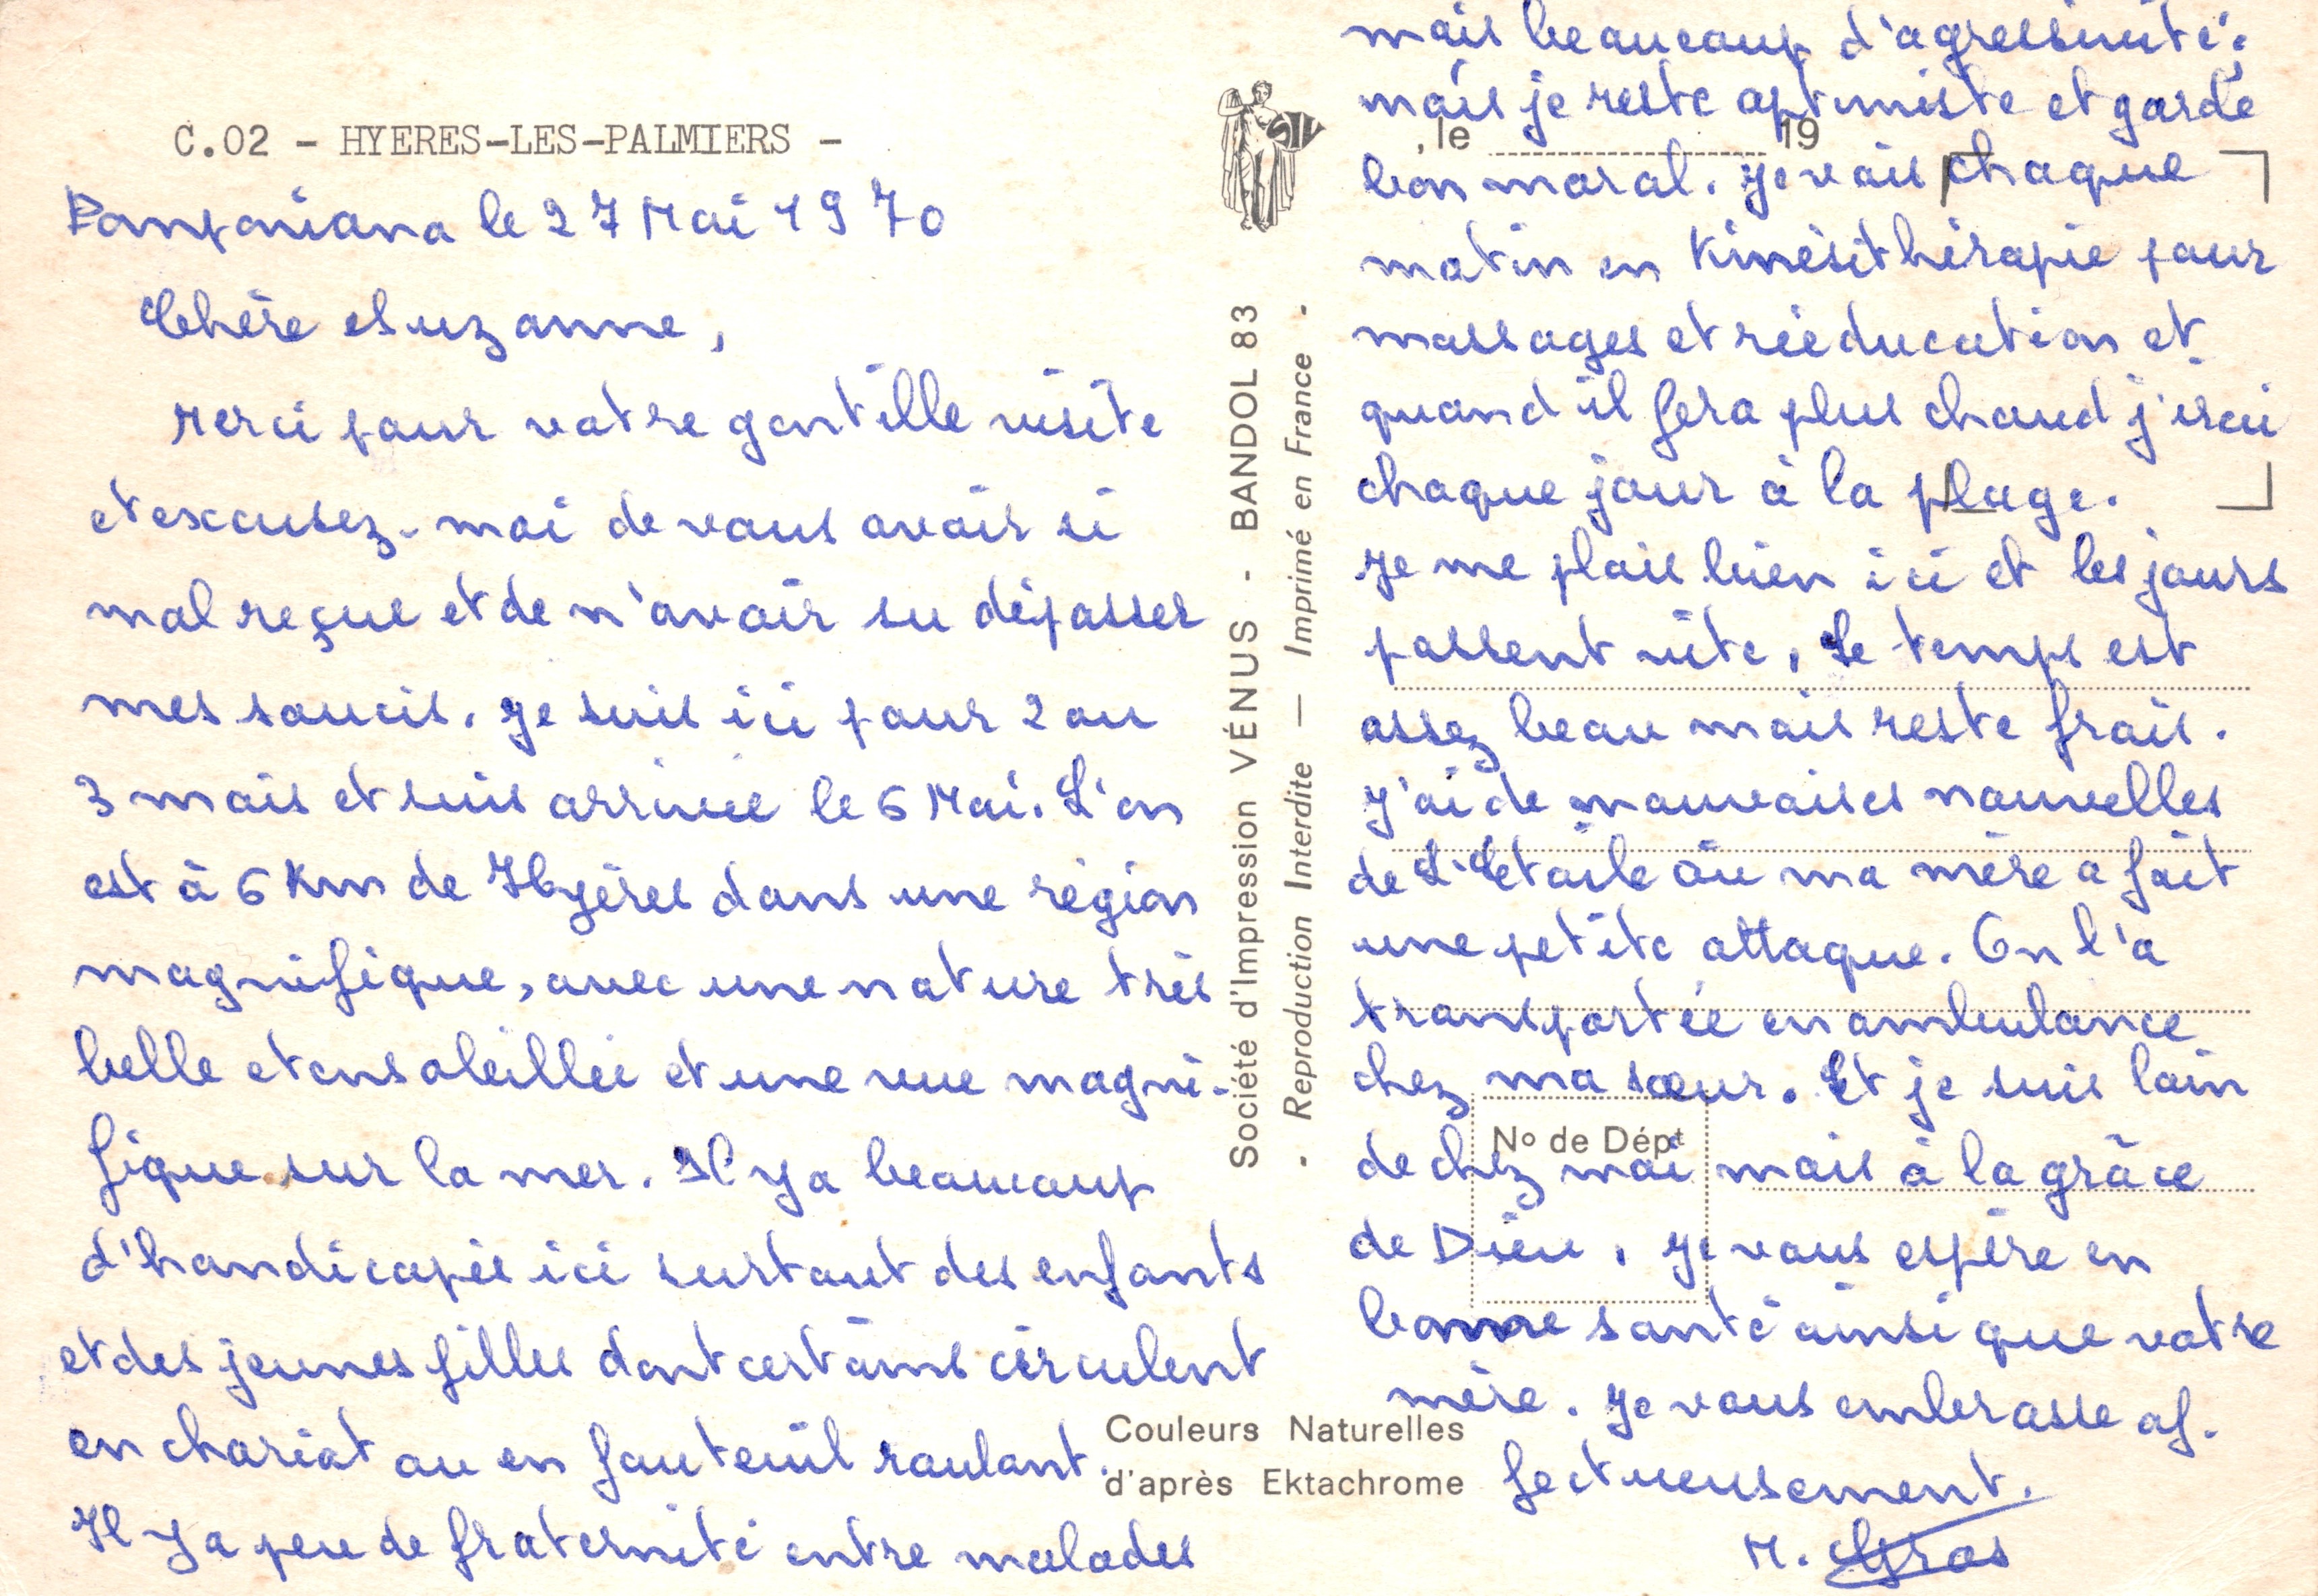 C.02 - HYERES-LES-PALMIERS -
Pomponiana le 27 Mai 1970
Chère Suzanne,
Merci pour votre gentille visite
et excusez-moi de vous avoir si
mal reçue et de n'avoir su dépasser
mes soucis. Je suis ici pour 2 ou
3 mois et suis arrivée le 6 Mai. L'on
est à 6 Km de Hyères dans une région
magnifique, avec une nature très
belle et ensoleillée et une vue magni-
fique sur la mer. Il y a beaucoup
d'handicapés ici surtout des enfants
et des jeunes filles dont certains circulent
en chariot ou en fauteuil roulant.
Il y a peu de fraternité entre malades
Société d'Impression VÉNUS - BANDOL 83
- Reproduction Interdite — Imprimé en France -
SIV
Couleurs Naturelles
d'après Ektachrome
, le 19
N° de Dépt
mais beaucoup d'agressivité;
mais je reste optimiste et garde
bon moral. Je vais chaque
matin en Kinésithérapie pour
massages et rééducation et
quand il fera plus chaud j'irai
chaque jour à la plage.
Je me plais bien ici et les jours
passent vite, Le temps est
assez beau mais reste frais.
J'ai de mauvaises nouvelles
de L'Etoile où ma mère a fait
une petite attaque. On l'a
transportée en ambulance
chez ma sœur. Et je suis loin
de chez moi mais à la grâce
de Dieu, Je vous espère en
bonne santé ainsi que votre
mère. Je vous embrasse af-
fectueusement.
M. Gros